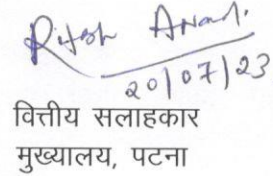 Ritesh Anand.
20/07/23
वित्तीय सलाहकार
मुख्यालय, पटना